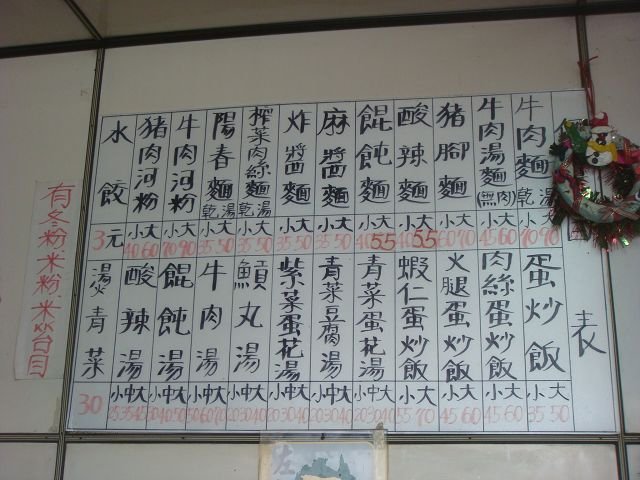 表
牛肉麵 乾湯 小大 70 90
牛肉湯麵(無肉) 小大 45 60
豬腳麵 小大 60 70
酸辣麵 小大 40 55
餛飩麵 小大 40 55
麻醬麵 小大 35 50
炸醬麵 小大 35 50
榨菜肉絲麵 乾湯 小大 35 50
陽春麵 乾湯 小大 35 50
牛肉河粉 小大 70 90
豬肉河粉 小大 40 60
水餃 3元
蛋炒飯 小大 35 50
肉絲蛋炒飯 小大 45 60
火腿蛋炒飯 小大 45 60
蝦仁蛋炒飯 小大 55 70
青菜蛋花湯 小中大 20 30 40
青菜豆腐湯 小中大 20 30 40
紫菜蛋花湯 小中大 20 30 40
丸湯 小中大 20 30 40
牛肉湯 小中大 50 60 70
餛飩湯 小中大 30 40 50
酸辣湯 小中大 25 35 45
燙青菜 30
有冬粉.米粉.米筶目
左